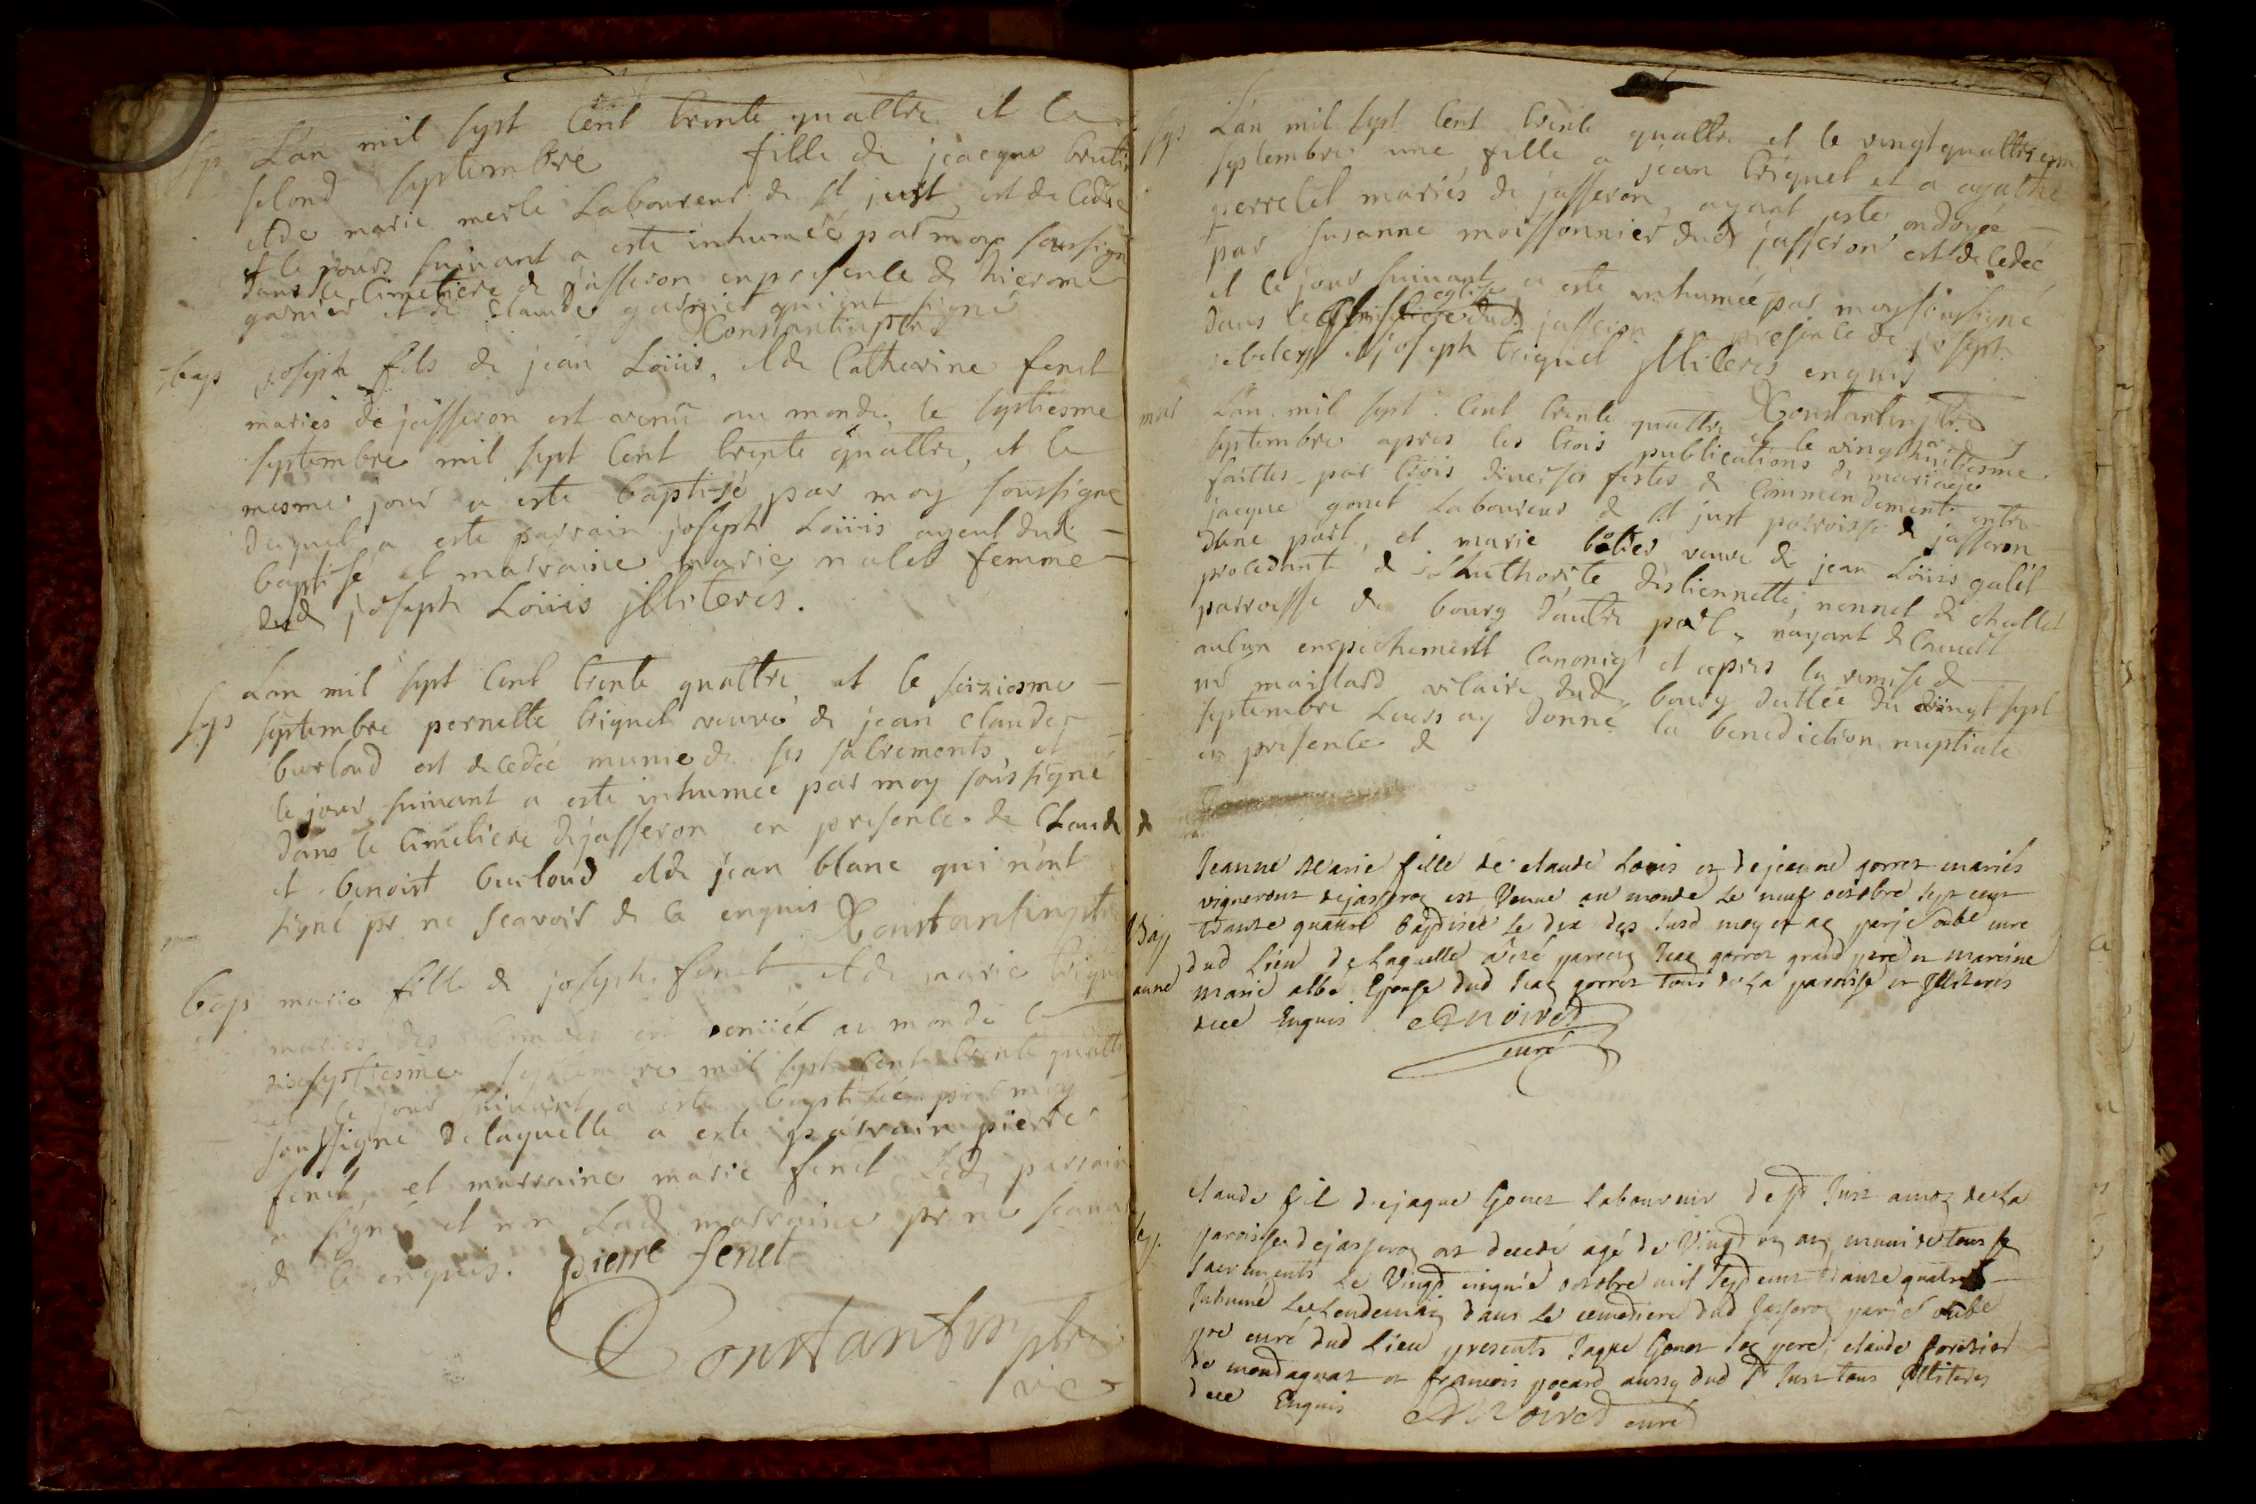 sep L'an mil sept Cent trente quattre et le
second septembre fille de jeacque
et de marie merle Laboureur de st just est decedée
et le jours suivant a esté inhumée par moy soussigné
dans le cimetiere de jasseron en presence de hierome
garnier et de Claude garnier qui ont signé
Constantin ptre
bap joseph fils de jean Loüis, et de Catherine fenet
mariés de jasseron est venu au monde le septiesme
septembre mil sept Cent trente quattre, et le
mesme jour a esté baptisé par moy soussigné
duquel a esté parrain joseph Loüis ayeul dud
baptisé et marraine marie nalet femme
dud joseph Loüis jlliterés.
sep L'an mil sept Cent trente quattre et le seiziesme
septembre pernette triquet veuve de jean claude
burloud est decedée munie de ses sacrements et
le jour suivant a esté inhumée par moy soussigné
dans le cimetiere de jasseron en presence de Claude
et benoist burloud et de jean blanc qui n'ont
signé pr ne scavoir de ce enquis Constantin ptre
bap marie fille de joseph fenet et de marie triquet
mariés des venüe au monde le
dixseptiesme septembre mil sept cent trente quattre
et le jour suivant a esté baptisée par moy
soussigné de laquelle a esté parrain pierre
fenet, et marraine marie fenet Led parrain
a signé et non Lad marraine pr ne scavoir
de ce enquis. pierre fenet
Constantin ptre
vic
sep L'an mil sept Cent trente quattre et le vingtquattriesme
septembre une fille a jean triquet et a agathe
perretet mariés de jasseron, ayant esté ondoyée
par susanne moissonnier dud jasseron est decedée
et le jour suivant a esté inhumée par moy soussigné
dans le eglise dud jasseron en presence de joseph
et joseph triquet jlliterés enquis
Constantin ptre
mar L'an mil sept Cent trente quattre et le vingthuitiesme
septembre apres les trois publications de mariage
faittes par trois diverses festes de Commendement entre
jacque gonet Laboureur de st just parroisse de jasseron
d'une part, et marie veuve de jean Loüis galet
procedant de L'authorité d'estiennette nennet de challes
parroisse de bourg d'autre part, n'ayant decouvert
aucun enpechement canoniq et apres la remise de
mr maillard vicaire dud bourg dattée du vingt sept
septembre Luers ay donné la benediction nuptiale
en presence de
Bap Jeanne Marie fille de claude Louis et de jeanne gorret mariés
vignerons dejasseron est Venue au monde Le neuf octobre sept cent
trante quattre baptisée Le dix des susd moy et an par je curé
dud Lieu de Laquelle a été parrein Jean gorret grand pere et mareine
marie albe Epouse dud Jean gorret tous de La paroisse et Jlliterés
dece Enquis Anoired
curé
sep. claude fil dejaque Gonet Laboureur de st Just annex de La
paroisse dejasseron est decedé agé de Vingd ans muni de tous se
sacrements Le Vingd cinquie octobre mil sept cent trante quatre
Inhumé Le Lendemain dans Le cemetiere dud Jasseron par je
pre curé dud Lieu presents Jaque Gonet son pere, claude
de mondagnat et francois pocard aussy dud st Just tous Jlliterés
dece Enquis Anoired curé